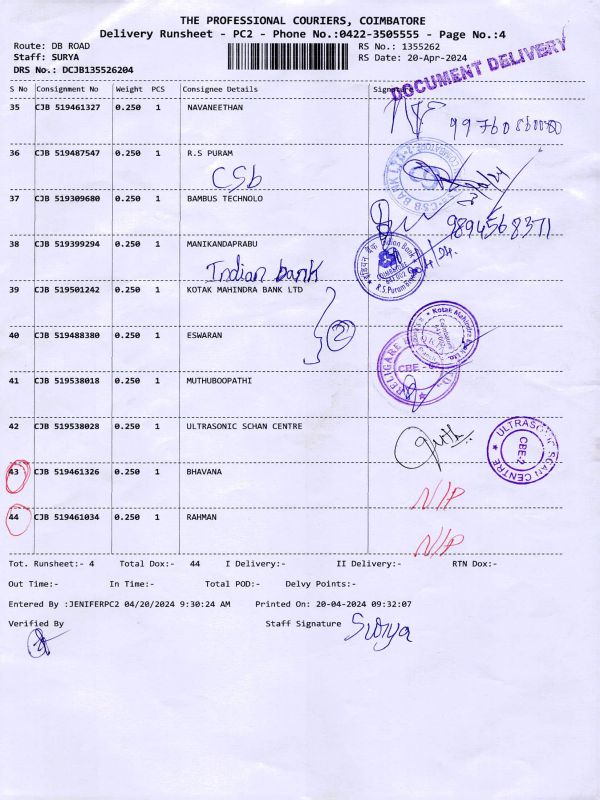 THE PROFESSIONAL COURIERS, COIMBATORE
Delivery Runsheet - PC2 - Phone No.:0422-3505555 - Page No.:4
Route: DB ROAD
RS No.: 1355262
Staff: SURYA
RS Date: 20-Apr-2024
DRS No.: DCJB135526204
DOCUMENT DELIVERY
S No Consignment No Weight PCS Consignee Details Signature
35 CJB 519461327 0.250 1 NAVANEETHAN
36 CJB 519487547 0.250 1 R.S PURAM
CSb
CSB BANK LTD
37 CJB 519309680 0.250 1 BAMBUS TECHNOLO
9894568371
38 CJB 519399294 0.250 1 MANIKANDAPRABU
Indian bank
Indian Bank
R.S.Puram
39 CJB 519501242 0.250 1 KOTAK MAHINDRA BANK LTD
Kotak Mahindra Bank Ltd.
2
40 CJB 519488380 0.250 1 ESWARAN
RELIGARE
CBE
41 CJB 519538018 0.250 1 MUTHUBOOPATHI
42 CJB 519538028 0.250 1 ULTRASONIC SCHAN CENTRE
ULTRASONIC SCAN CENTRE
CBE-2
43 CJB 519461326 0.250 1 BHAVANA
N/P
44 CJB 519461034 0.250 1 RAHMAN
N/P
Tot. Runsheet:- 4 Total Dox:- 44 I Delivery:- II Delivery:- RTN Dox:-
Out Time:- In Time:- Total POD:- Delvy Points:-
Entered By :JENIFERPC2 04/20/2024 9:30:24 AM Printed On: 20-04-2024 09:32:07
Verified By Staff Signature Surya